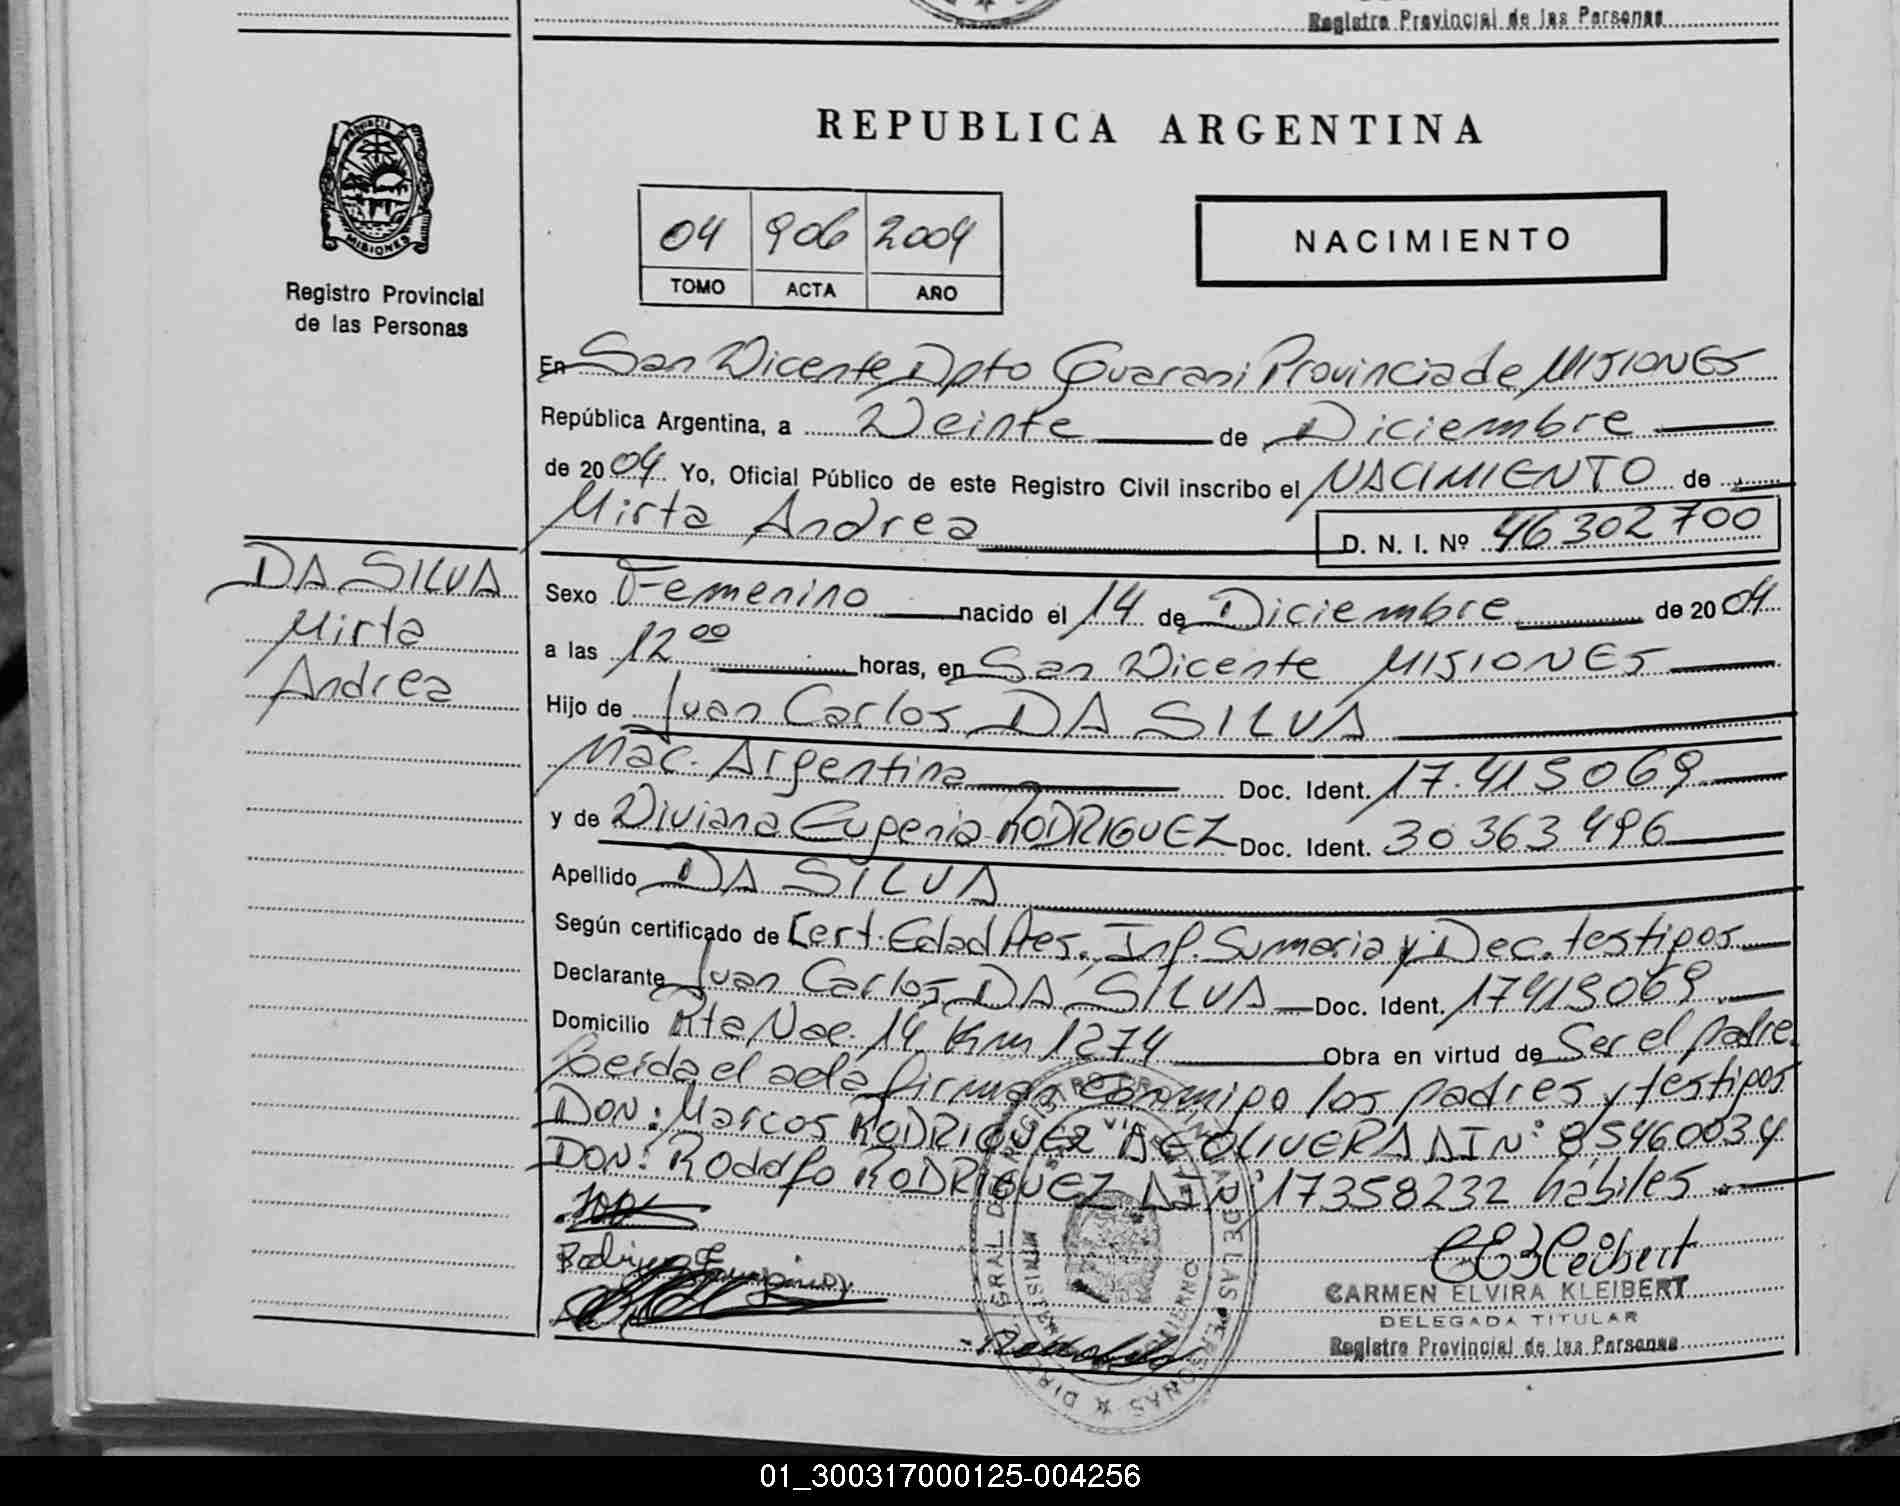 Registro Provincial de las Personas
REPUBLICA ARGENTINA
PROVINCIA DE
MISIONES
Registro Provincial
de las Personas
04 906 2004
TOMO ACTA AÑO
NACIMIENTO
En San Vicente Dpto Guarani Provincia de MISIONES
República Argentina, a Veinte de Diciembre
de 2004 Yo, Oficial Público de este Registro Civil inscribo el NACIMIENTO de
Mirta Andrea D. N. I. Nº 46302700
DA SILVA
Mirta
Andrea
Sexo Femenino nacido el 14 de Diciembre de 2004
a las 12 00 horas, en San Vicente MISIONES
Hijo de Juan Carlos DA SILVA
Nac. Argentina Doc. Ident. 17.419069
y de Viviana Eugenia RODRIGUEZ Doc. Ident. 30363496
Apellido DA SILVA
Según certificado de Cert. Edad Pres. Inf. Sumaria y Dec. testigos
Declarante Juan Carlos DA SILVA Doc. Ident. 17419069
Domicilio Rta Nac. 14 Km 1274 Obra en virtud de Ser el padre
Leida el acta firman conmigo los padres y testigos
DON: Marcos RODRIGUEZ DE OLIVERA DIN: 85460034
DON: Rodolfo RODRIGUEZ DIN: 17358232 hábiles
CARMEN ELVIRA KLEIBERT
DELEGADA TITULAR
Registro Provincial de las Personas
01_300317000125-004256